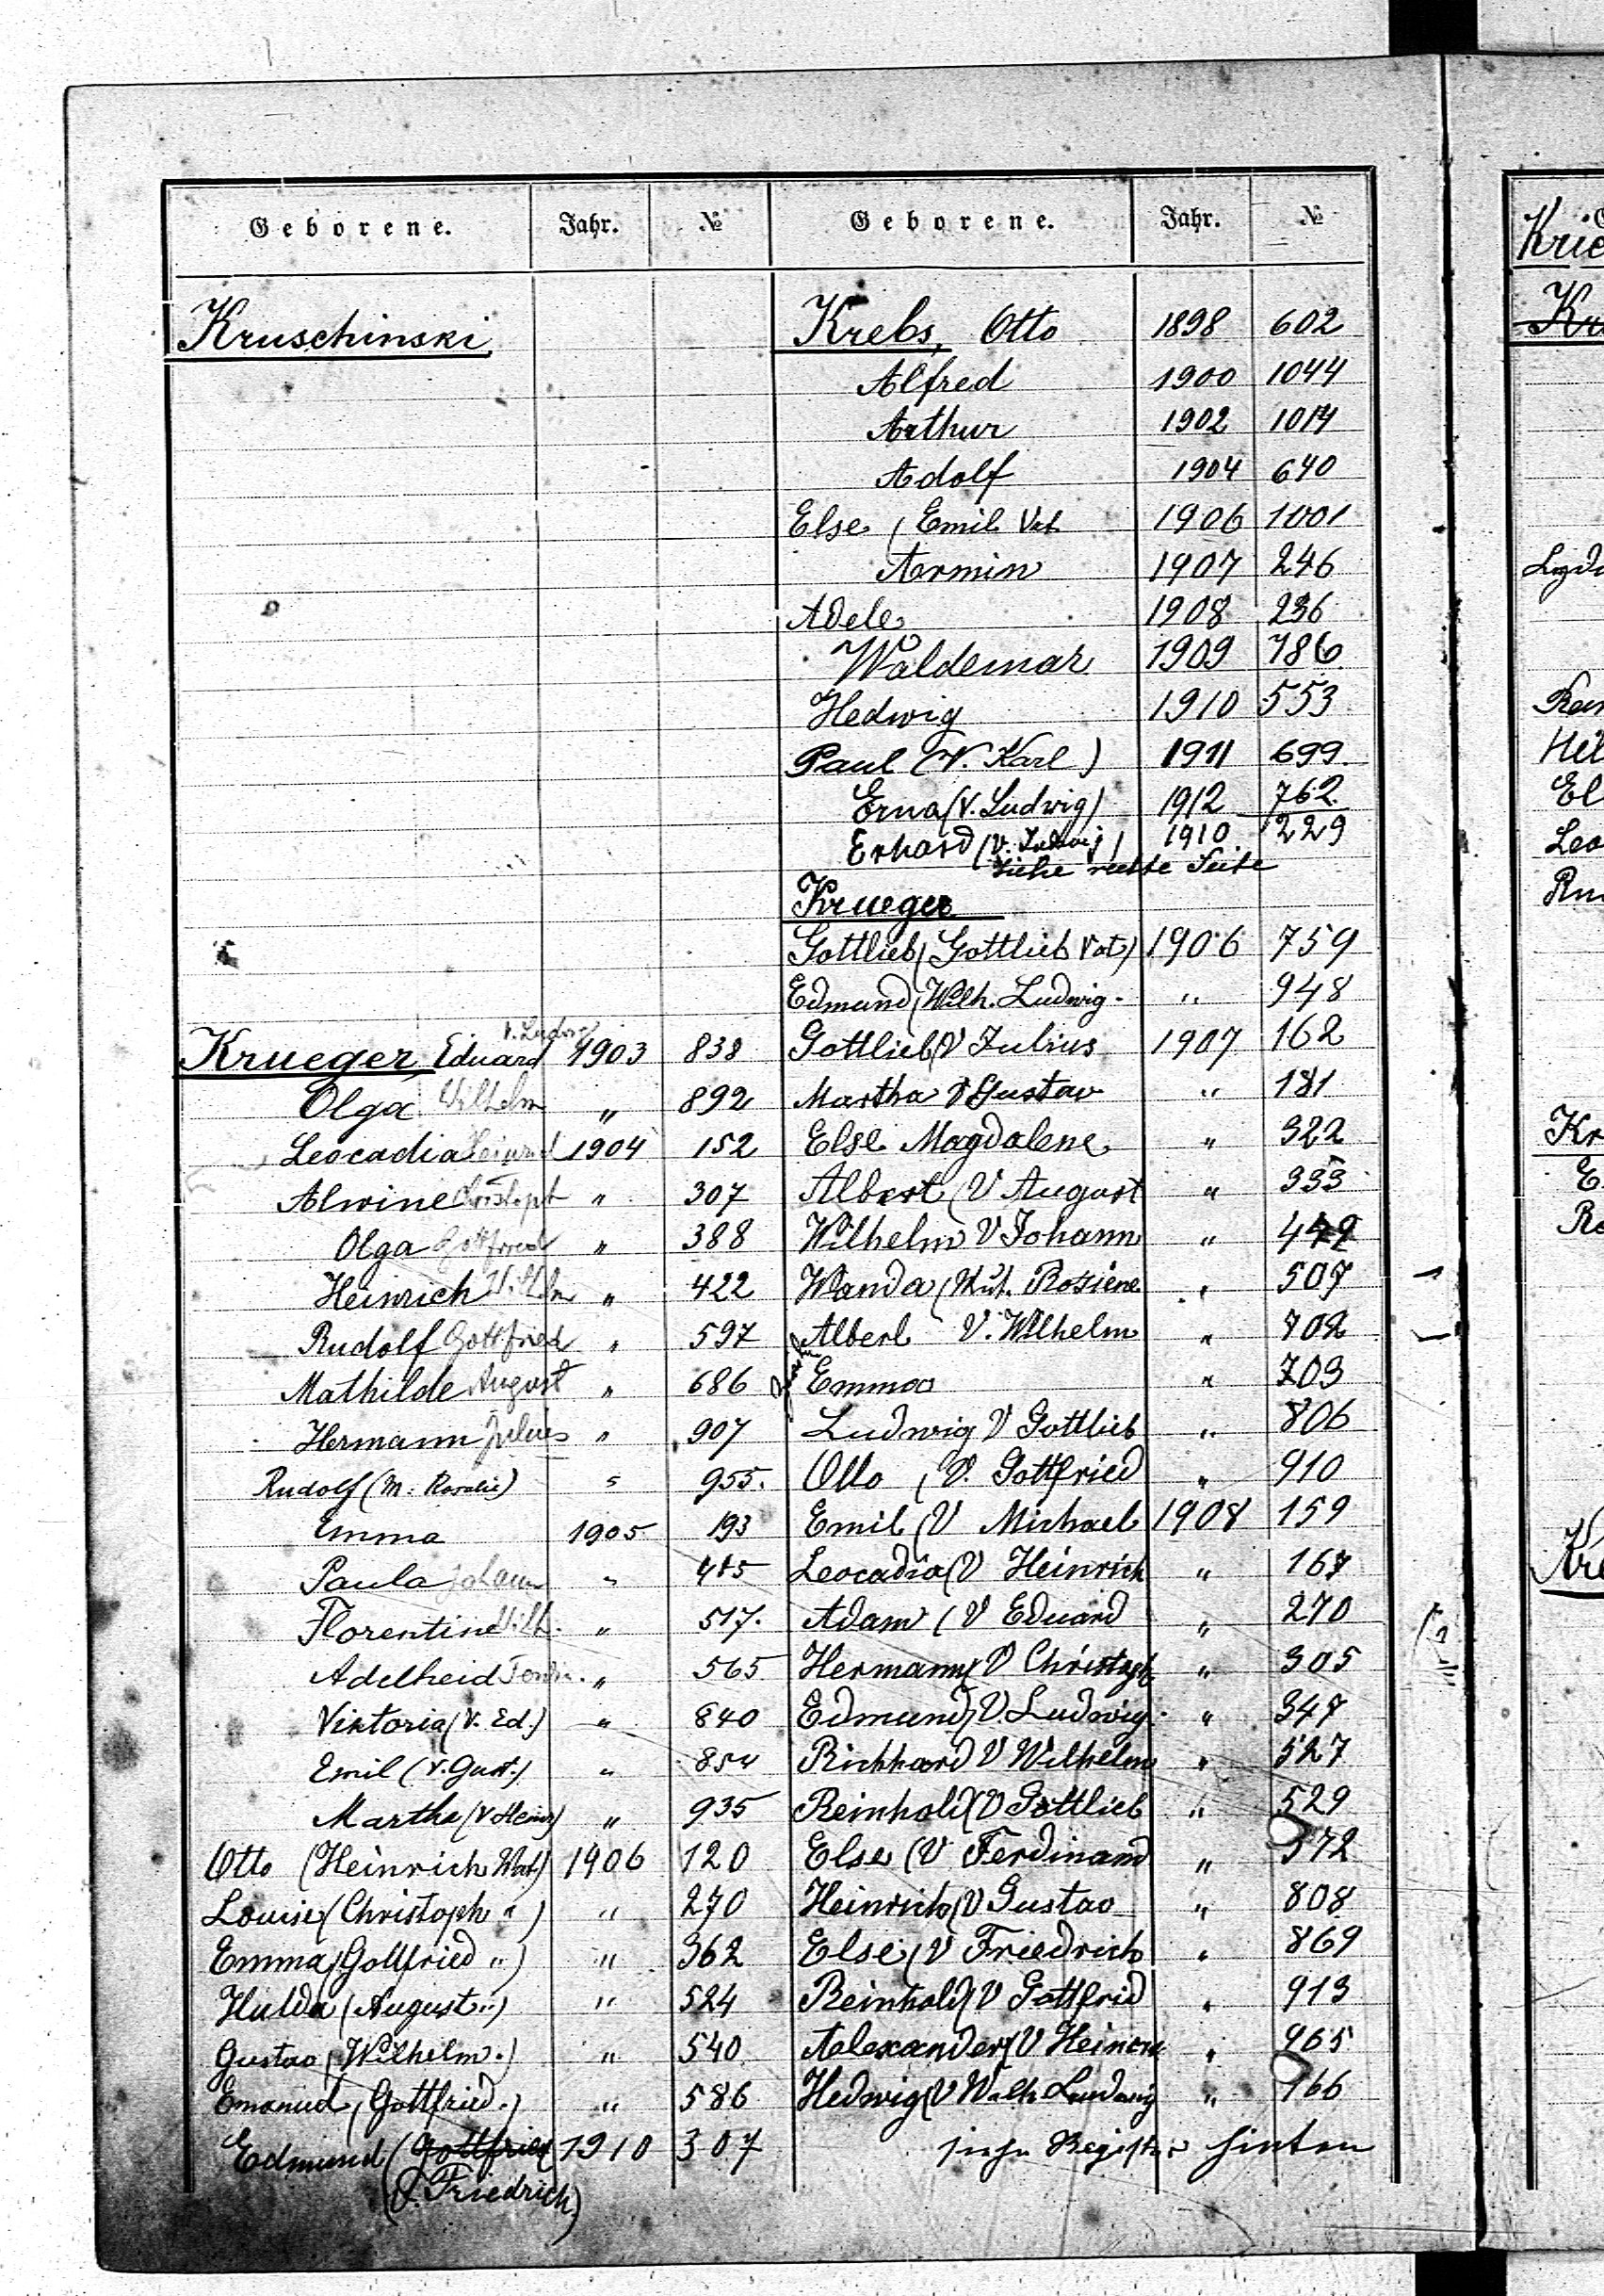 Geborene. Jahr. № Geborene. Jahr. №
Kruschinski
Krueger, Eduard V. Ludw. 1903 838
Olga Wilhelm " 892
Leocadia Heinrich 1904 152
Alwine Christoph " 307
Olga Gottfried " 388
Heinrich Wilhelm " 422
Rudolf Gottfried " 597
Mathilde August " 686
Hermann Julius " 907
Rudolf (M. Rosalie) " 955.
Emma 1905 193
Paula Johann "
Florentine Wilh. " 517.
Adelheid Ferdin. " 565
Viktoria (V. Ed.) " 840
Emil (V. Gust.) " 854
Martha (V Heinr) " 935
Otto (Heinrich Vat) 1906 120
Louise (Christoph ") " 270
Emma (Gottfried ") " 362
Hulda (August ") " 524
Gustav (Wilhelm ") " 540
Emanuel (Gottfried ") " 586
Edmund (Gottfried 1910 307
(V. Friedrich)
Krebs, Otto 1898 602
Alfred 1900 1044
Arthur 1902 1014
Adolf 1904 640
Else (Emil Vat. 1906 1001
Armin 1907 246
Adele 1908 236
Waldemar 1909 786
Hedwig 1910 553
Paul (V. Karl) 1911 699.
Erna (V. Ludwig) 1912 762
Erhard (V. Ludwig) 1910 229
Siehe rechte Seite
Krueger
Gottlieb (Gottlieb Vat) 1906 759
Edmund (Wilh. Ludwig " 948
Gottlieb (V Julius 1907 162
Martha V Gustav " 181
Else Magdalene " 322
Albert (V August " 333
Wilhelm V Johann "
Wanda (Mut. Rosine " 507
Albert V. Wilhelm " 702
Emma " 703
Ludwig V Gottlieb " 806
Otto (V. Gottfried " 910
Emil (V Michael 1908 159
Leocadia (V Heinrich " 167
Adam (V Eduard " 270
Hermann (V Christoph " 305
Edmund (V. Ludwig " 347
Richhard V Wilhelm " 527
Reinhold (V Gottlieb " 529
Else (V Ferdinand " 572
Heinrich (V Gustav " 808
Else (V Friedrich " 869
Reinhold (V Gottfrid " 913
Alexander (V Heinrich " 965
Hedwig (V Wilh. Ludwig " 966
siehe Register hinten
Krie
Kr
Lyd
Rei
Hel
El
Leo
Ru
Kr
E
Ro
Kre